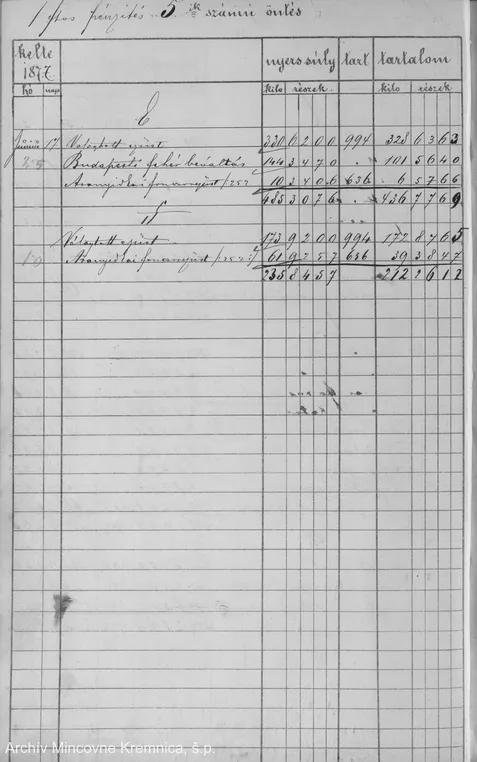 1 ftos pénzítés 5ik számú öntés
kelte nyers súly tart tartalom
1877.
hó nap kilo részek kilo részek
E
Június 17 Választott ezüst 330 6200 994 328 6363
25 Budapesti fehér beváltás 144 3470 . 101 5640
Aranyidkai foncsorezüst 10 3406 636 6 5766
485 3076 . 436 7769
F
Választott ezüst 173 9200 994 172 8765
10 Aranyidkai foncsorezüst 61 9257 636 39 3847
235 8457 212 2612
Archív Mincovne Kremnica, š.p.